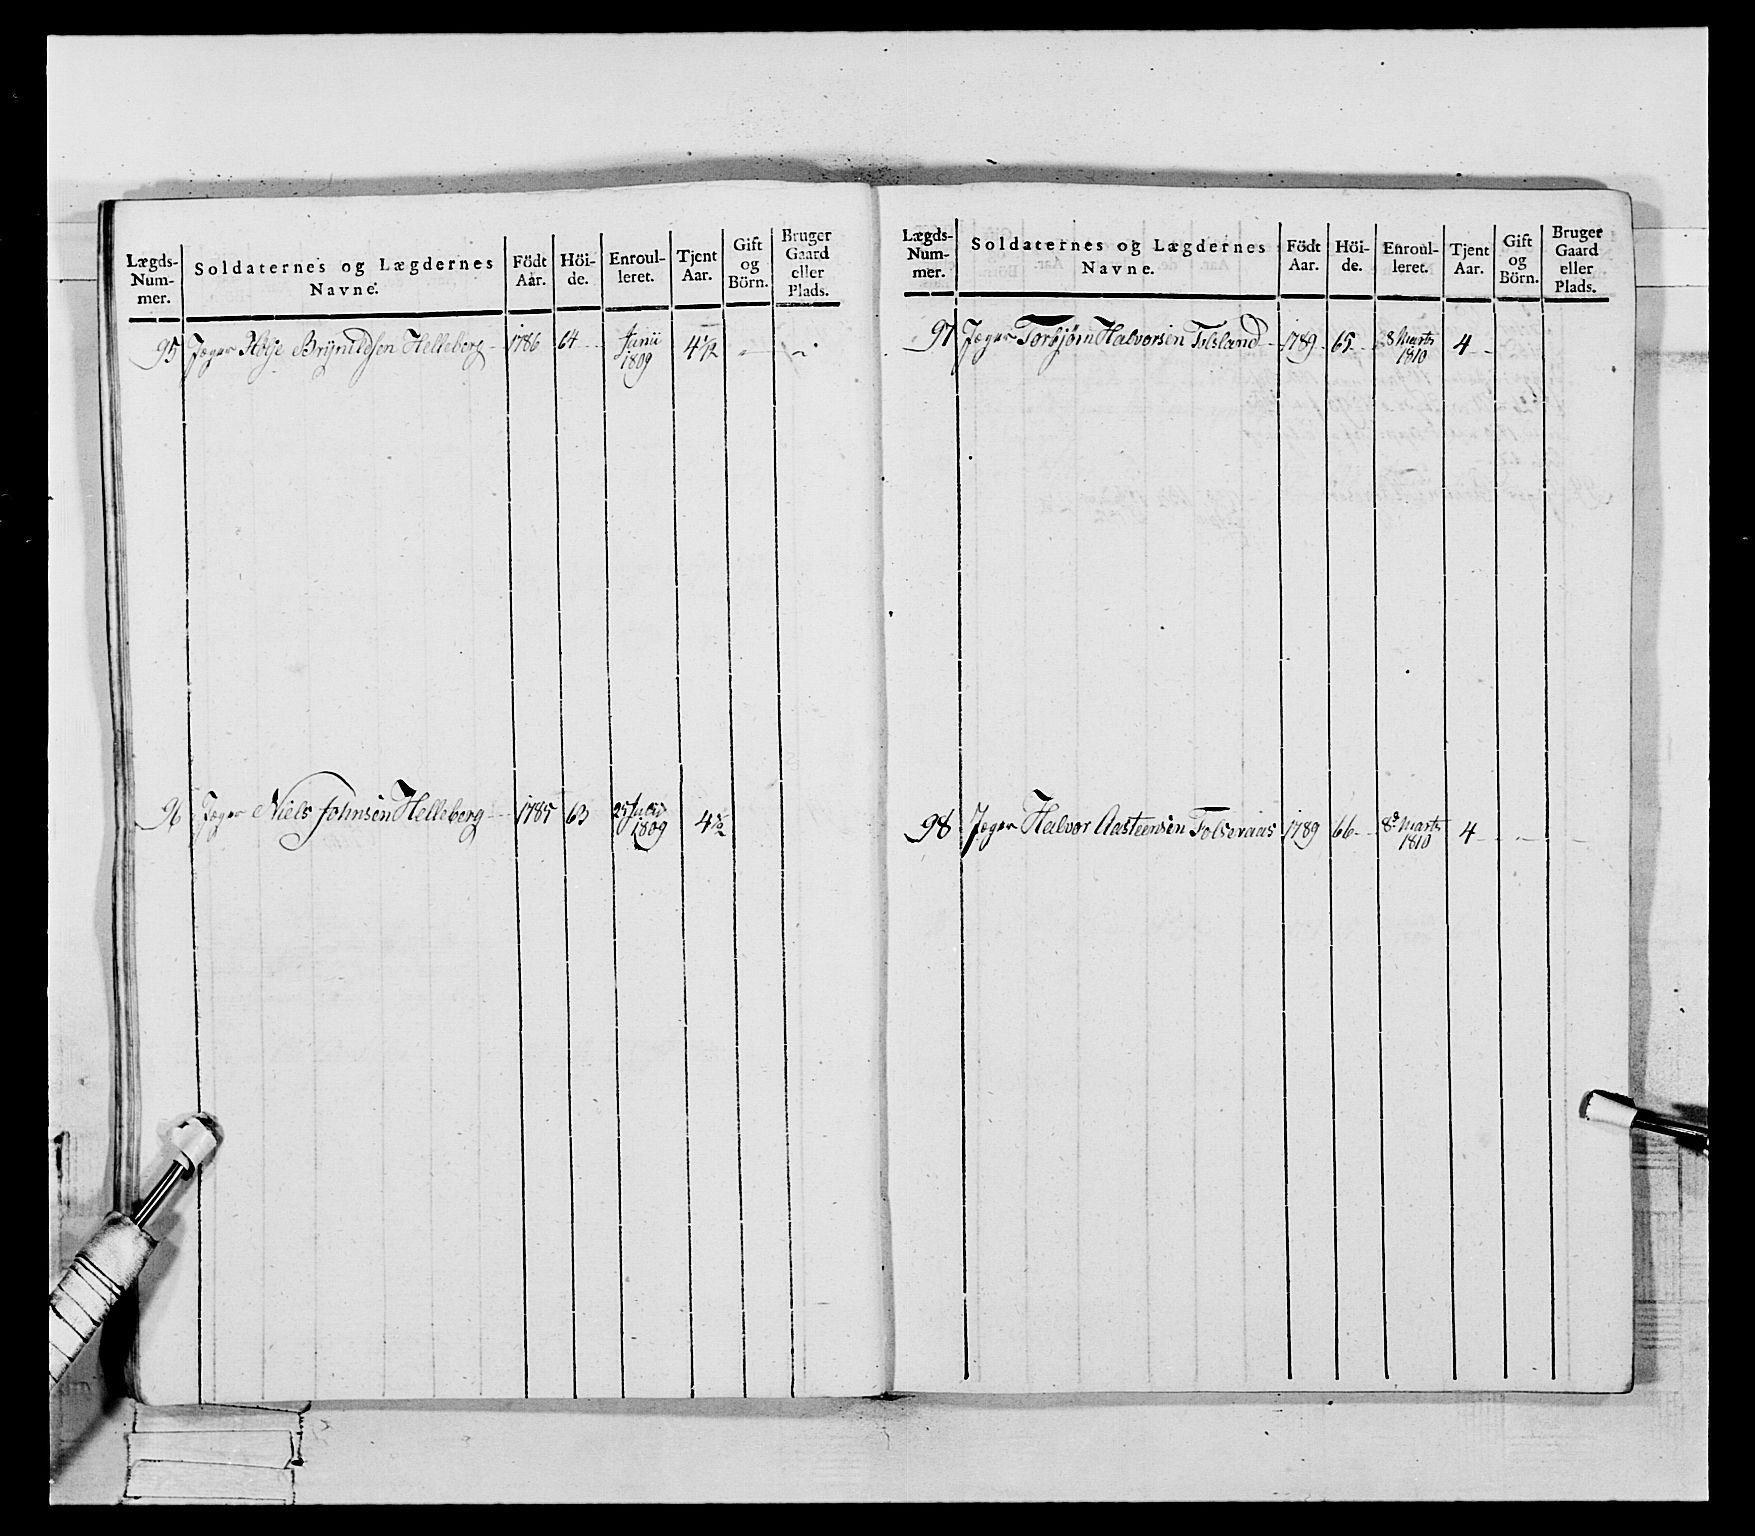 Lægds-
Num-
mer.
Soldaternes og Lægdernes
Navne.
Födt
Aar.
Höi-
de.
Enroul-
leret.
Tjent
Aar.
Gift
og
Börn.
Bruger
Gaard
eller
Plads.
95 Jæger Brÿnildsen Helleberg 1786 64 Junii 4 1/2
1809
96 Jæger Niels Johnsen Helleberg 1785 63 25 4 1/2
1809
Lægds-
Num-
mer.
Soldaternes og Lægdernes
Navne.
Födt
Aar.
Höi-
de.
Enroul-
leret.
Tjent
Aar.
Gift
og
Börn.
Bruger
Gaard
eller
Plads.
97 Jæger Torbjørn Halvorsen Folsland 1789 65 8 Marts 4
1810
98 Jæger Halvor Aasteensen Folseraas 1789 66 8 Marts 4
1810